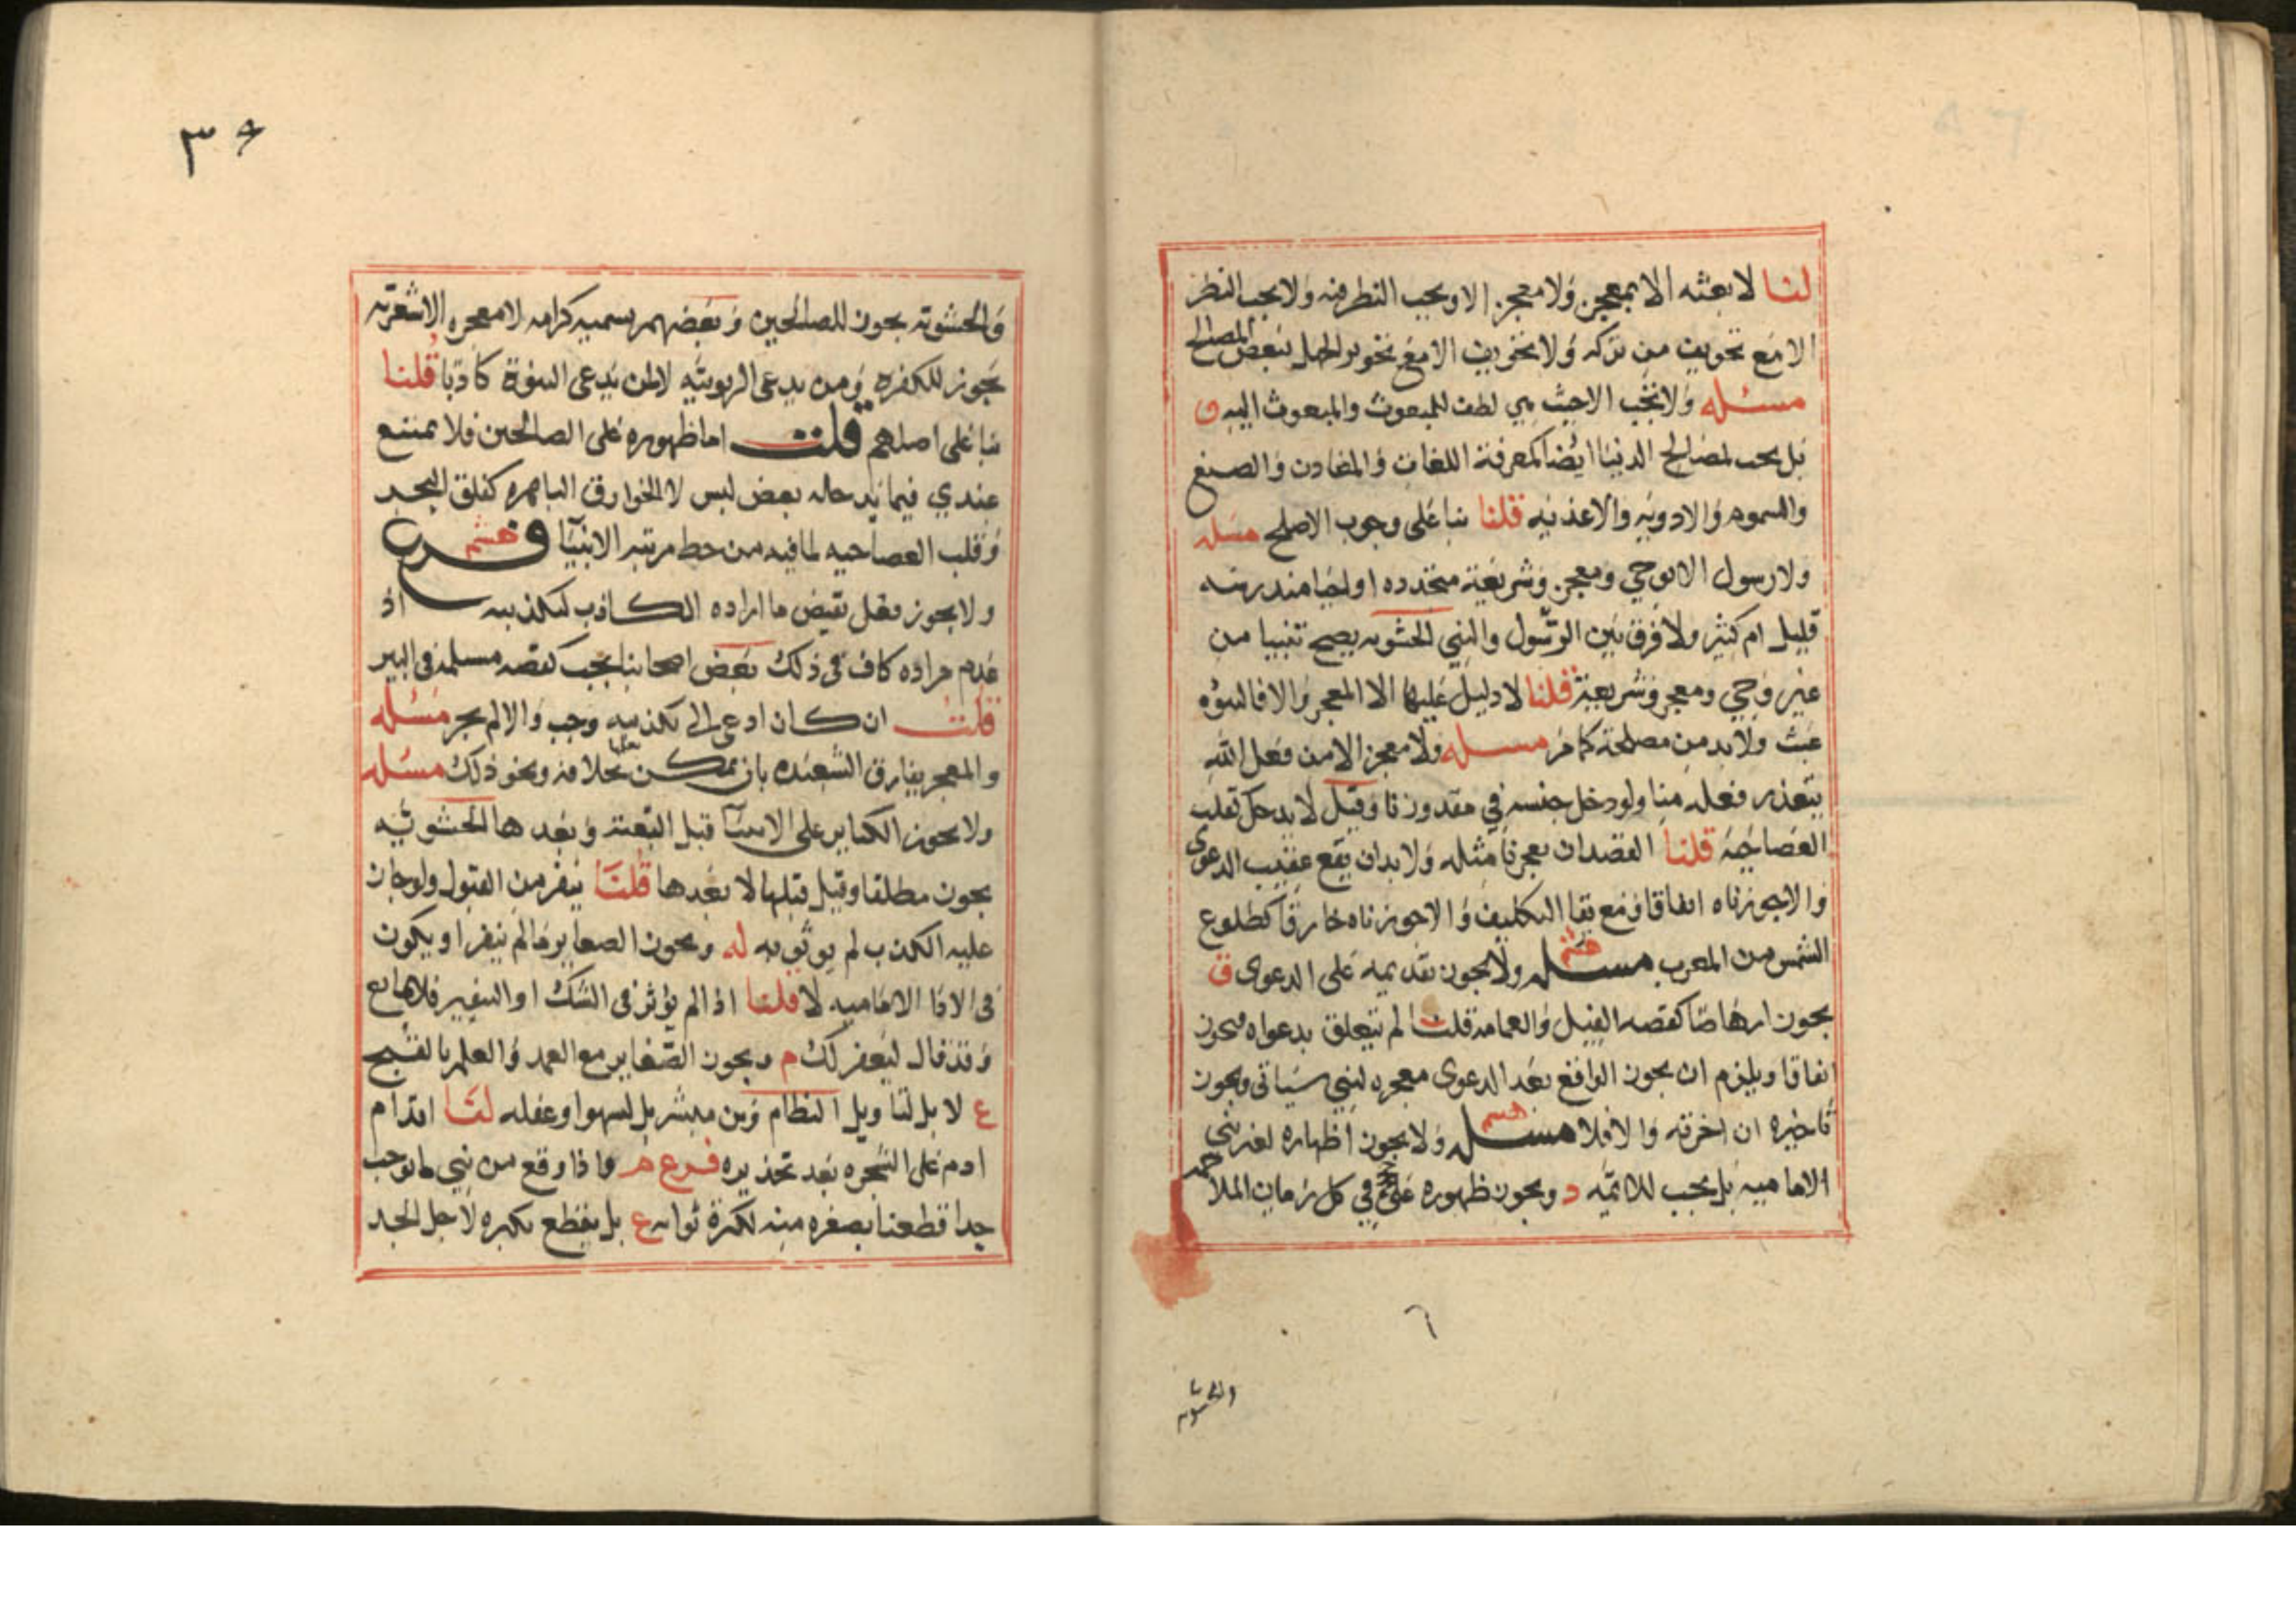 لنا لا بعثه الا بمعجز ولا معجز الا ويجب النظر فيه ولا يجب النظر
الا مع تخويف من تركه ولا تخويف الا مع تجويز الجهل ببعض المصالح
مسئله ولا تجب الا حيث هي لطف للمبعوث والمبعوث اليه ق
بل يجب لمصالح الدنيا ايضا كمعرفة اللغات والمعادن والصنع
والسموم والادويه والاغذيه قلنا بنا على وجوب الاصلح مسله
ولا رسول الا بوحي ومعجز وشريعة متجدده او احيا مندرسه
قليل ام كثير ولا فرق بين الرسول والنبي الحشويه يصح تنبيا من
غير وحي ومعجز وشريعة قلنا لا دليل عليها الا المعجز والا فالنبوه
عبث ولا بد من مصلحة كما مر مسله ولا معجز الا من فعل الله
يتعذر فعله منا ولو دخل جنسه في مقدورنا وقيل لا يدخل كقلب
العصا حيه قلنا القصد ان يعجزنا مثله ولا بد ان يقع عقيب الدعوى
والا جوزناه اتفاقا ومع بقا التكليف والا جوزناه خارقا كطلوع
الشمس من المغرب مسله هشم ولا يجوز تقديمه على الدعوى ق
يجوز ارهاصا كقصه الفيل والغمامه قلت لم يتعلق بدعواه فيجوز
اتفاقا ويلزم ان يجوز الواقع بعد الدعوى معجزه لنبي سياتي ويجوز
تاخيره ان اخر به والا فلا مسله هشم ولا يجوز اظهاره لغير نبي
الاماميه بل يجب للائمه د ويجوز ظهوره على في كل زمان الملاحمه
٦
والحشويه
٣٥
والحشويه يجوز للصالحين وبعضهم يسميه كرامه لا معجزه الاشعريه
يجوز للكفره ومن يدعي الربوبيه لا لمن يدعي النبوة كاذبا قلنا
بنا على اصلهم قلت اما ظهوره على الصالحين فلا يمتنع
عندي فيما يدخله بعض لبس لا الخوارق الباهره كفلق البحر
وقلب العصا حيه لما فيه من حط مرتبه الانبيا فرع هشم
ولا يجوز فعل نقيض ما اراده الكاذب لتكذيبه اذ
عدم مراده كاف في ذلك بعض اصحابنا يجب كقصه مسلمه في البير
قلت ان كان ادعى الى تكذيبه وجب والا لم يجز مسئله
والمعجز يفارق الشعبذه بان يمكن تعلمها بخلافه ونحو ذلك مسله
ولا يجوز الكباير على الانبيا قبل البعثه وبعدها الحشويه
يجوز مطلقا وقيل قبلها لا بعدها قلنا ينفر من القبول ولو جاز
عليه الكذب لم يوثق به له ويجوز الصغاير ما لم ينفر او يكون
في الادا الاماميه لا قلنا اذا لم يؤثر في الشك او التنفير فلا مانع
وقد قال ليغفر لك م ويجوز الصغاير مع العمد والعلم بالقبح
ع لا بل لتاويل النظام وبن مبشر بل لسهو او غفله لنا اقدام
ادم على الشجره بعد تحذيره فرع م واذا وقع من نبي ما يوجب
حدا قطعنا بصغره منه لكثرة ثوابه ع بل يقطع بكبره لاجل الحد